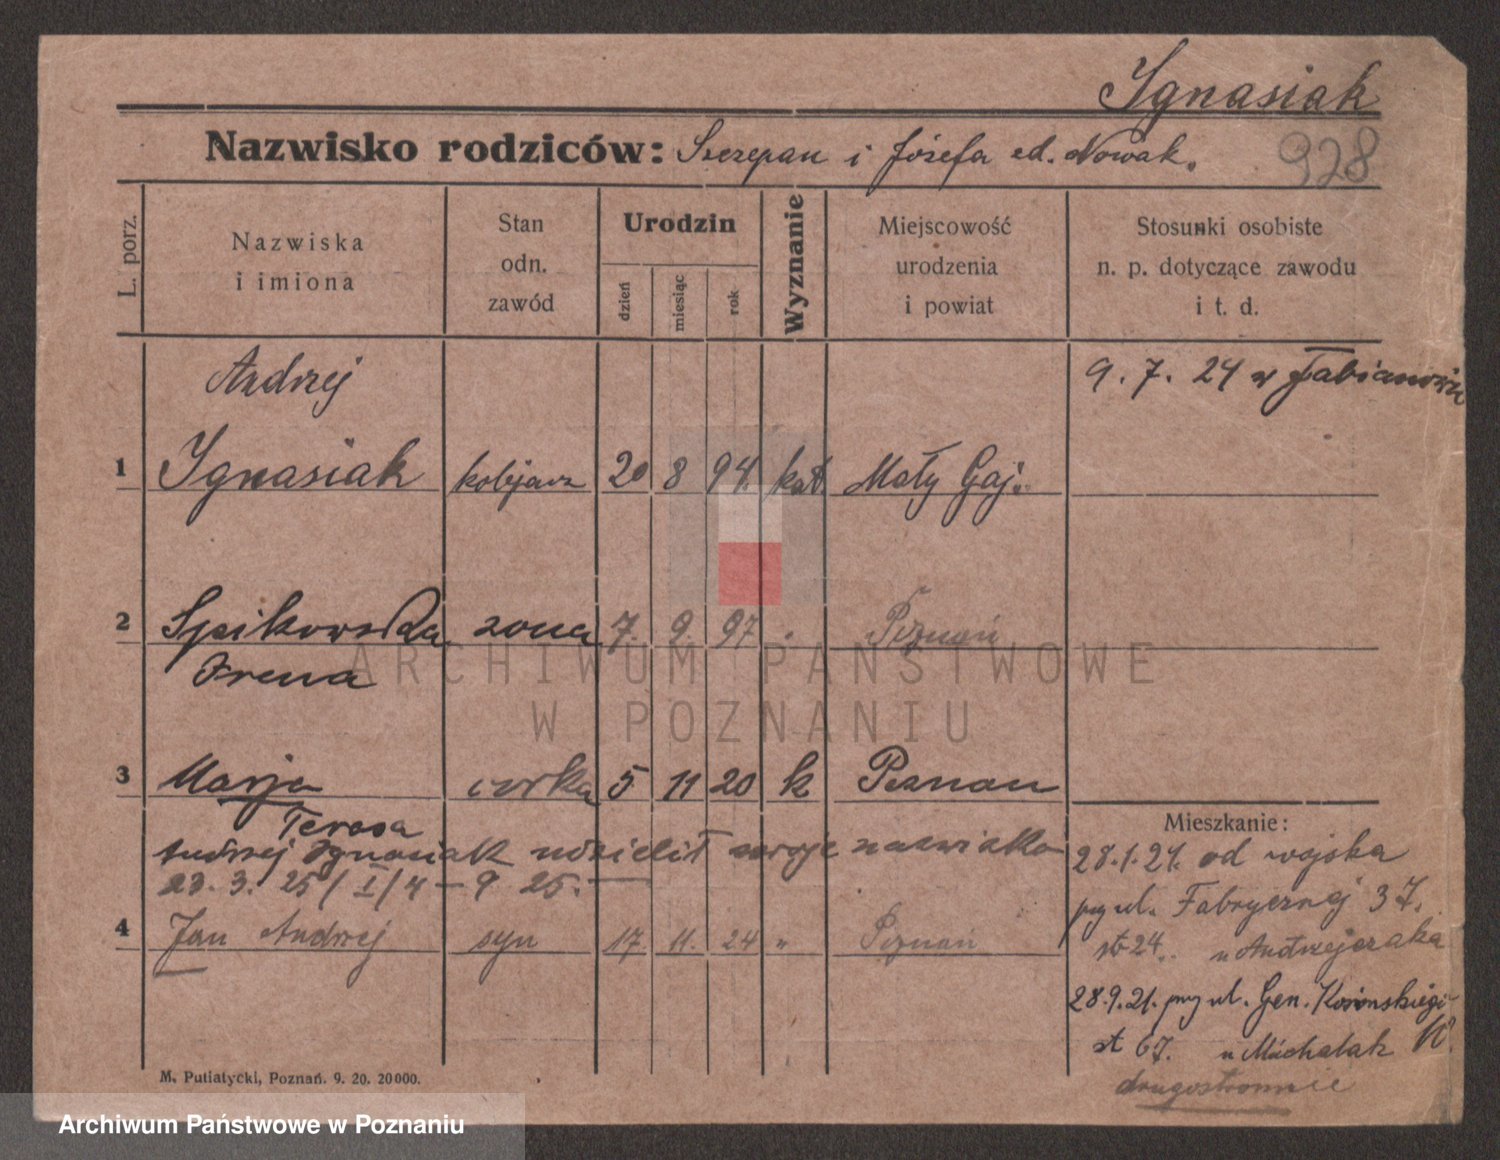 Ignasiak
Nazwisko rodziców: Szczepan i Józefa ed. Nowak.
928
L. porz.
Nazwiska
i imiona
Stan
odn.
zawód
Urodzin
dzień
miesiąc
rok
Wyznanie
Miejscowość
urodzenia
i powiat
Stosunki osobiste
n. p. dotyczące zawodu
i t. d.
Andrzej
9. 7. 24 w Fabianowie
1 Ignasiak kolejarz 20 8 94. kat. Mały Gaj.
2 Spikowska żona 7. 9. 97 Poznań
Irena
ARCHIWUM PAŃSTWOWE
W POZNANIU
3 Marja córka 5 11 20 k Poznań
Teresa
Andrzej Ignasiak udzielił swoje nazwisko
23. 3. 25/I/4 – 9 25. –
4 Jan Andrzej syn 17. 11. 24 " Poznań
Mieszkanie:
28.1.21. od wojska
przy ul. Fabrycznej 37.
st 24. u Andrzejczaka
28.9.21. przy ul. Gen. Kosińskiego
st 67. u Michalak W.
drugostronnie
M. Putiatycki, Poznań. 9. 20. 20000.
Archiwum Państwowe w Poznaniu